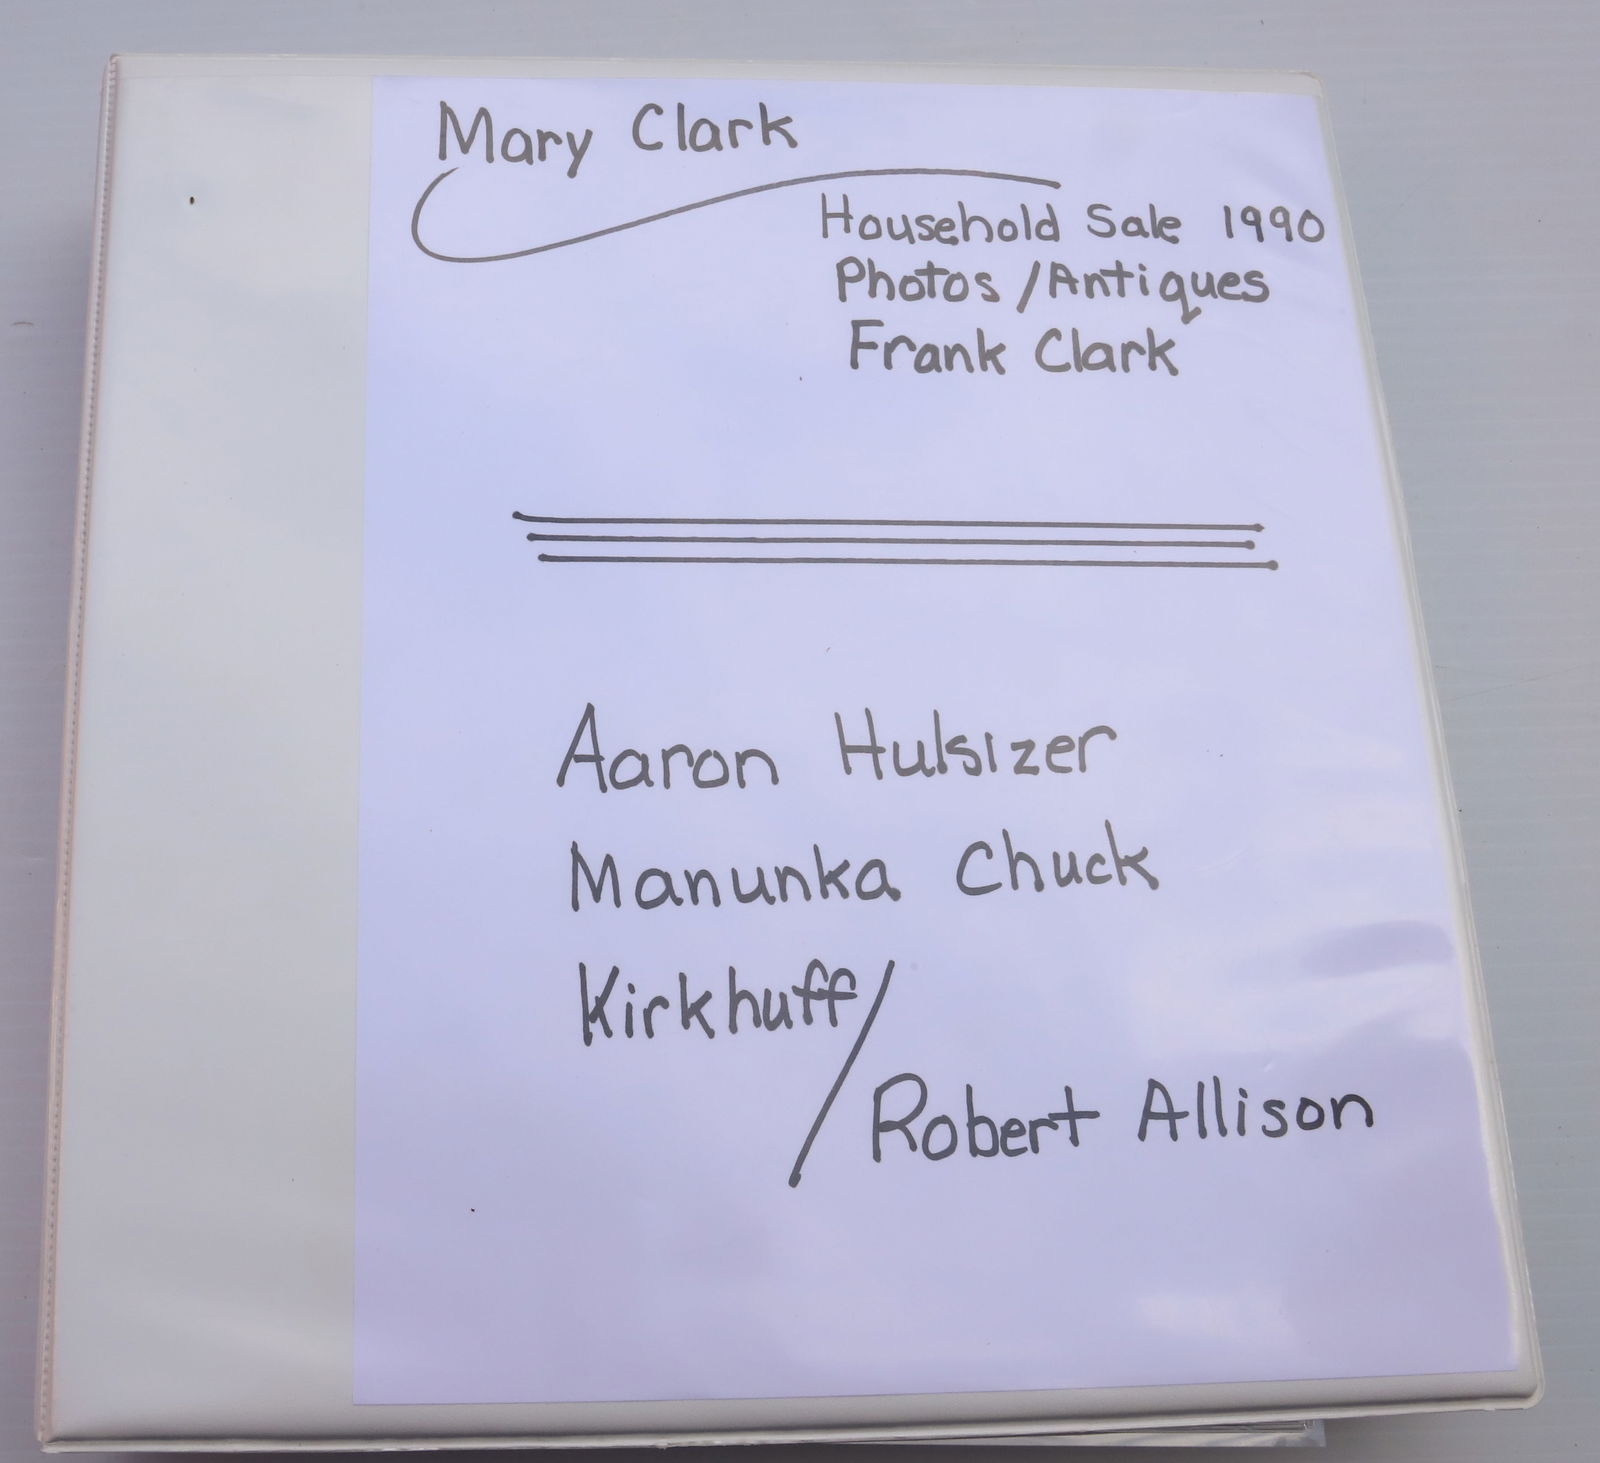 Mary Clark
Household Sale 1990
Photos / Antiques
Frank Clark
Aaron Hulsizer
Manunka Chuck
Kirkhuff /
Robert Allison